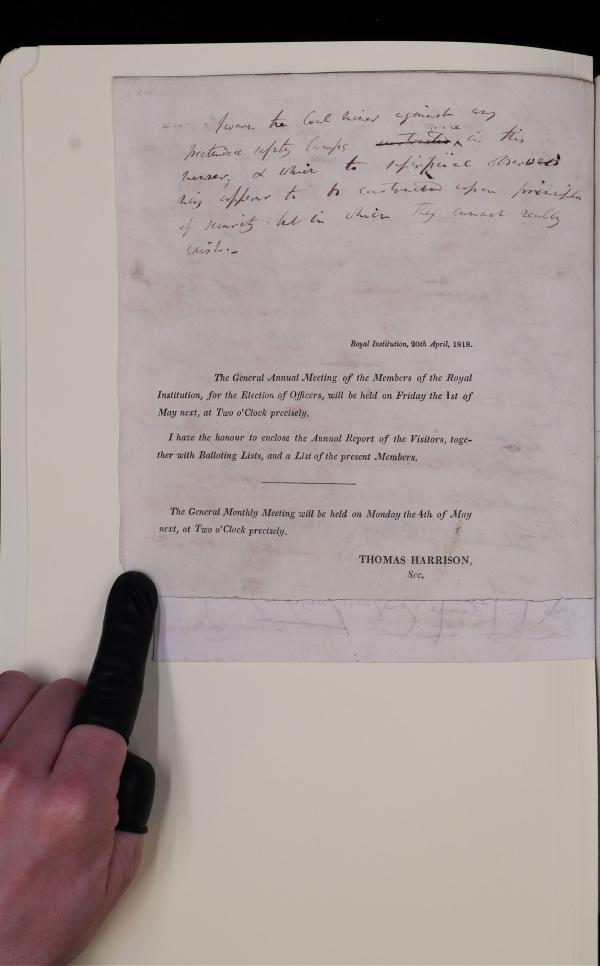 I warn the Coal miner against any
pretended safety lamps constructed made in this
manner, & which to superficial observers
may appear to be constructed upon principles
of security but in which they cannot really
exist.–
Royal Institution, 20th April, 1818.
The General Annual Meeting of the Members of the Royal
Institution, for the Election of Officers, will be held on Friday the 1st of
May next, at Two o'Clock precisely.
I have the honour to enclose the Annual Report of the Visitors, toge-
ther with Balloting Lists, and a List of the present Members.
The General Monthly Meeting will be held on Monday the 4th of May
next, at Two o'Clock precisely.
THOMAS HARRISON,
Sec.